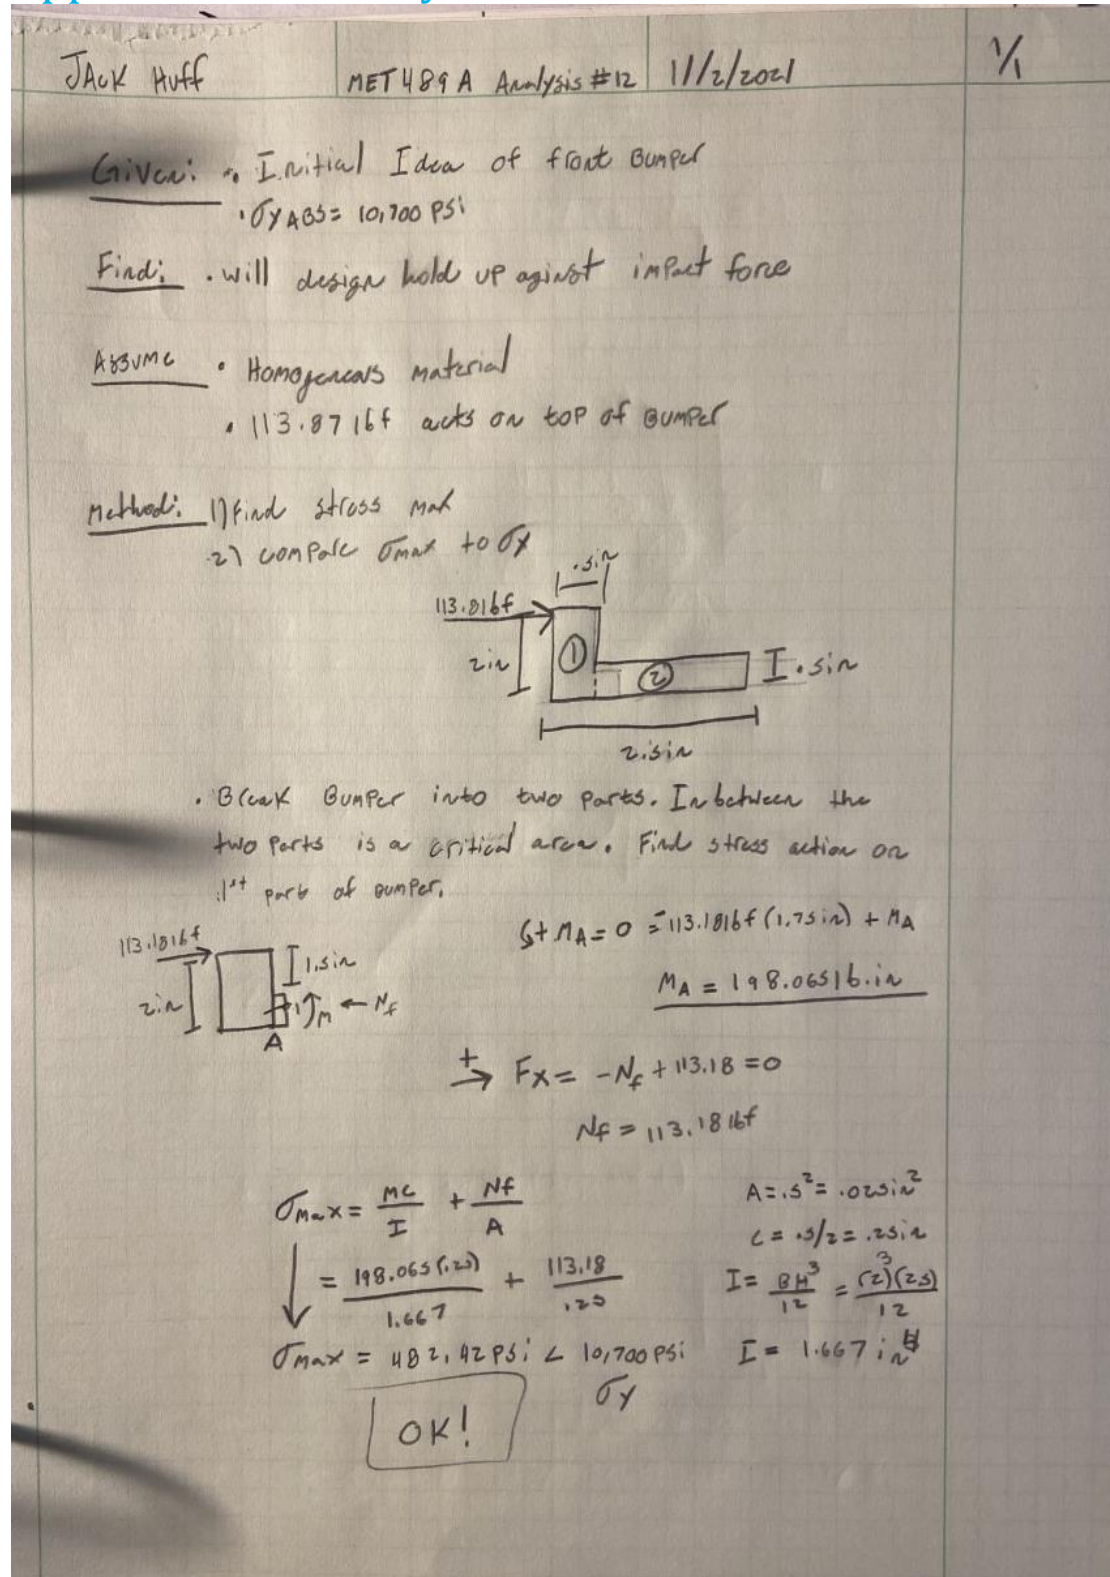 Jack Huff MET 489A Analysis #12 11/2/2021 1/1
Given: • Initial Idea of front Bumper
• σy ABS = 10,700 PSi
Find: • will design hold up aginst impact force
Assume • Homogeneous material
• 113.87 lbf acts on top of Bumper
Method: 1) Find stress max
2) compare σmax to σy
.5in
113.8lbf
2in
① ② .5in
2.5in
• Break Bumper into two parts. Inbetween the
two parts is a critical area. Find stress action on
1st part of Bumper.
113.18lbf
1.5in
2in
M ← Nf
A
↺+ MA = 0 = 113.18lbf (1.75in) + MA
MA = 198.065lb.in
+→ Fx = -Nf + 113.18 = 0
Nf = 113.18 lbf
σmax = MC/I + Nf/A
= 198.065(.25)/1.667 + 113.18/.25
σmax = 482.42 PSi < 10,700 PSi
σy
A = .5² = .025in²
C = .5/2 = .25in
I = BH³/12 = (2)³(25)/12
I = 1.667 in⁴
OK!